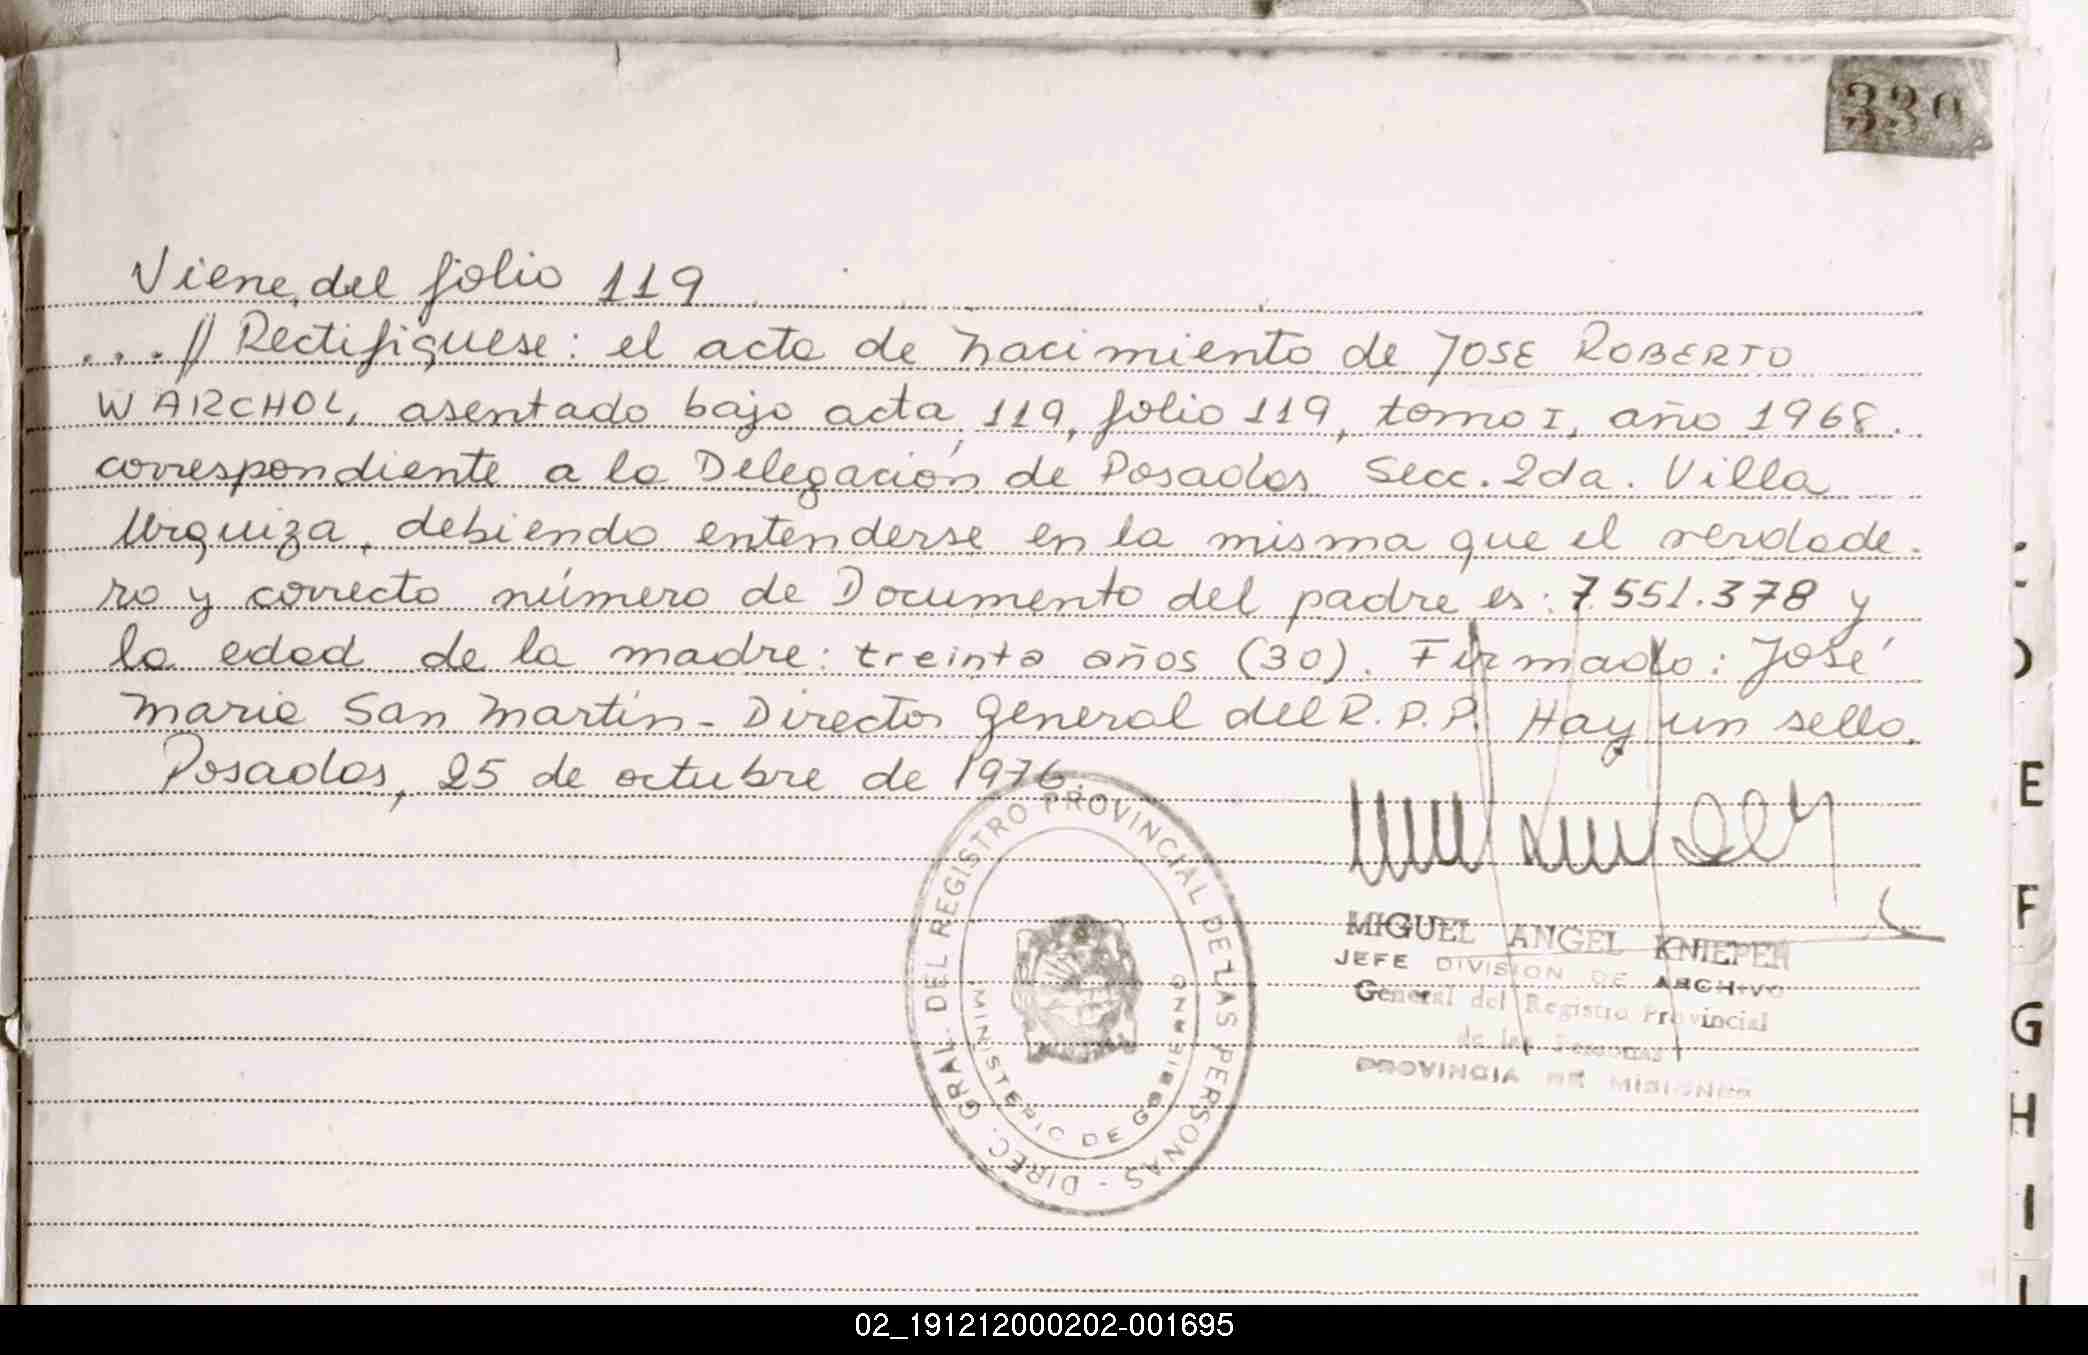 330
Viene del folio 119
...// Rectifiquese: el acta de nacimiento de JOSE ROBERTO
WARCHOL, asentado bajo acta 119, folio 119, tomo I, año 1968.
correspondiente a la Delegación de Posadas Secc. 2da. Villa
Urquiza, debiendo entenderse en la misma que el verdade-
ro y correcto número de Documento del padre es: 7.551.378 y
la edad de la madre: treinta años (30). Firmado: José
Maria San Martín - Director General del R.P.P. Hay un sello.
Posadas, 25 de octubre de 1976.
DIREC. GRAL. DEL REGISTRO PROVINCIAL DE LAS PERSONAS -
MINISTERIO DE GOBIERNO
MIGUEL ANGEL
JEFE DIVISION DE ARCHIVO
General del Registro Provincial
de las Personas
PROVINCIA DE MISIONES
E
F
G
H
I
02_191212000202-001695